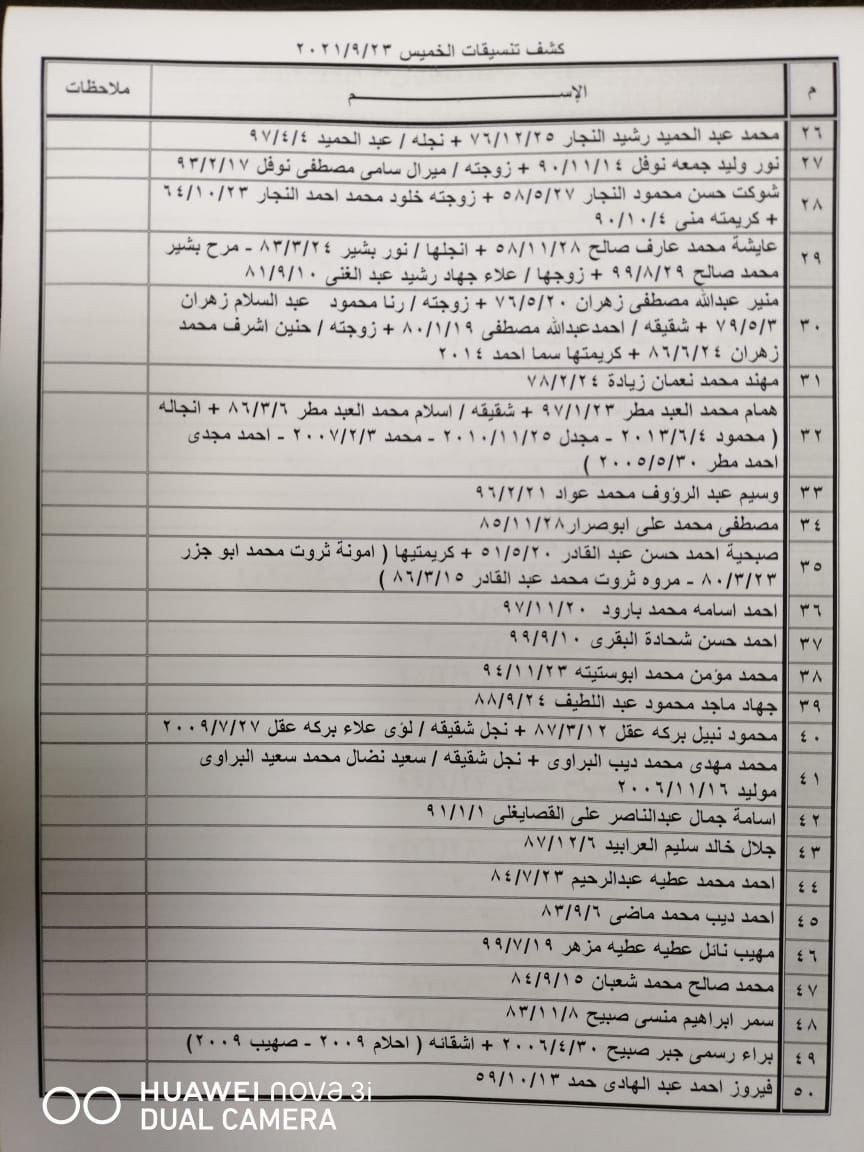 كشف تنسيقات الخميس ٢٠٢١/٩/٢٣
م الإســــم ملاحظات
٢٦ محمد عبد الحميد رشيد النجار ٧٦/١٢/٢٥ + نجله / عبد الحميد ٩٧/٤/٤
٢٧ نور وليد جمعه نوفل ٩٠/١١/١٤ + زوجته / ميرال سامى مصطفى نوفل ٩٣/٢/١٧
٢٨ شوكت حسن محمود النجار ٥٨/٥/٢٧ + زوجته خلود محمد احمد النجار ٦٤/١٠/٢٣
+ كريمته منى ٩٠/١٠/٤
٢٩ عايشة محمد عارف صالح ٥٨/١١/٢٨ + انجلها / نور بشير ٨٣/٣/٢٤ - مرح بشير
محمد صالح ٩٩/٨/٢٩ + زوجها / علاء جهاد رشيد عبد الغنى ٨١/٩/١٠
٣٠ منير عبدالله مصطفى زهران ٧٦/٥/٢٠ + زوجته / رنا محمود عبد السلام زهران
٧٩/٥/٣ + شقيقه / احمدعبدالله مصطفى ٨٠/١/١٩ + زوجته / حنين اشرف محمد
زهران ٨٦/٦/٢٤ + كريمتها سما احمد ٢٠١٤
٣١ مهند محمد نعمان زيادة ٧٨/٢/٢٤
٣٢ همام محمد العبد مطر ٩٧/١/٢٣ + شقيقه / اسلام محمد العبد مطر ٨٦/٣/٦ + انجاله
( محمود ٢٠١٣/٦/٤ - مجدل ٢٠١٠/١١/٢٥ - محمد ٢٠٠٧/٢/٣ - احمد مجدى
احمد مطر ٢٠٠٥/٥/٣٠ )
٣٣ وسيم عبد الرؤوف محمد عواد ٩٦/٢/٢١
٣٤ مصطفى محمد على ابوصرار٨٥/١١/٢٨
٣٥ صبحية احمد حسن عبد القادر ٥١/٥/٢٠ + كريمتيها ( امونة ثروت محمد ابو جزر
٨٠/٣/٢٣ - مروه ثروت محمد عبد القادر ٨٦/٣/١٥ )
٣٦ احمد اسامه محمد بارود ٩٧/١١/٢٠
٣٧ احمد حسن شحادة البقرى ٩٩/٩/١٠
٣٨ محمد مؤمن محمد ابوستيته ٩٤/١١/٢٣
٣٩ جهاد ماجد محمود عبد اللطيف ٨٨/٩/٢٤
٤٠ محمود نبيل بركه عقل ٨٧/٣/١٢ + نجل شقيقه / لؤى علاء بركه عقل ٢٠٠٩/٧/٢٧
٤١ محمد مهدى محمد ديب البراوى + نجل شقيقه / سعيد نضال محمد سعيد البراوى
موليد ٢٠٠٦/١١/١٦
٤٢ اسامة جمال عبدالناصر على القصايغلى ٩١/١/١
٤٣ جلال خالد سليم العرابيد ٨٧/١٢/٦
٤٤ احمد محمد عطيه عبدالرحيم ٨٤/٧/٢٣
٤٥ احمد ديب محمد ماضى ٨٣/٩/٦
٤٦ مهيب نائل عطيه عطيه مزهر ٩٩/٧/١٩
٤٧ محمد صالح محمد شعبان ٨٤/٩/١٥
٤٨ سمر ابراهيم منسى صبيح ٨٣/١١/٨
٤٩ براء رسمى جبر صبيح ٢٠٠٦/٤/٣٠ + اشقائه ( احلام ٢٠٠٩ - صهيب ٢٠٠٩)
٥٠ فيروز احمد عبد الهادى حمد ٥٩/١٠/١٣
HUAWEI nova 3i
DUAL CAMERA